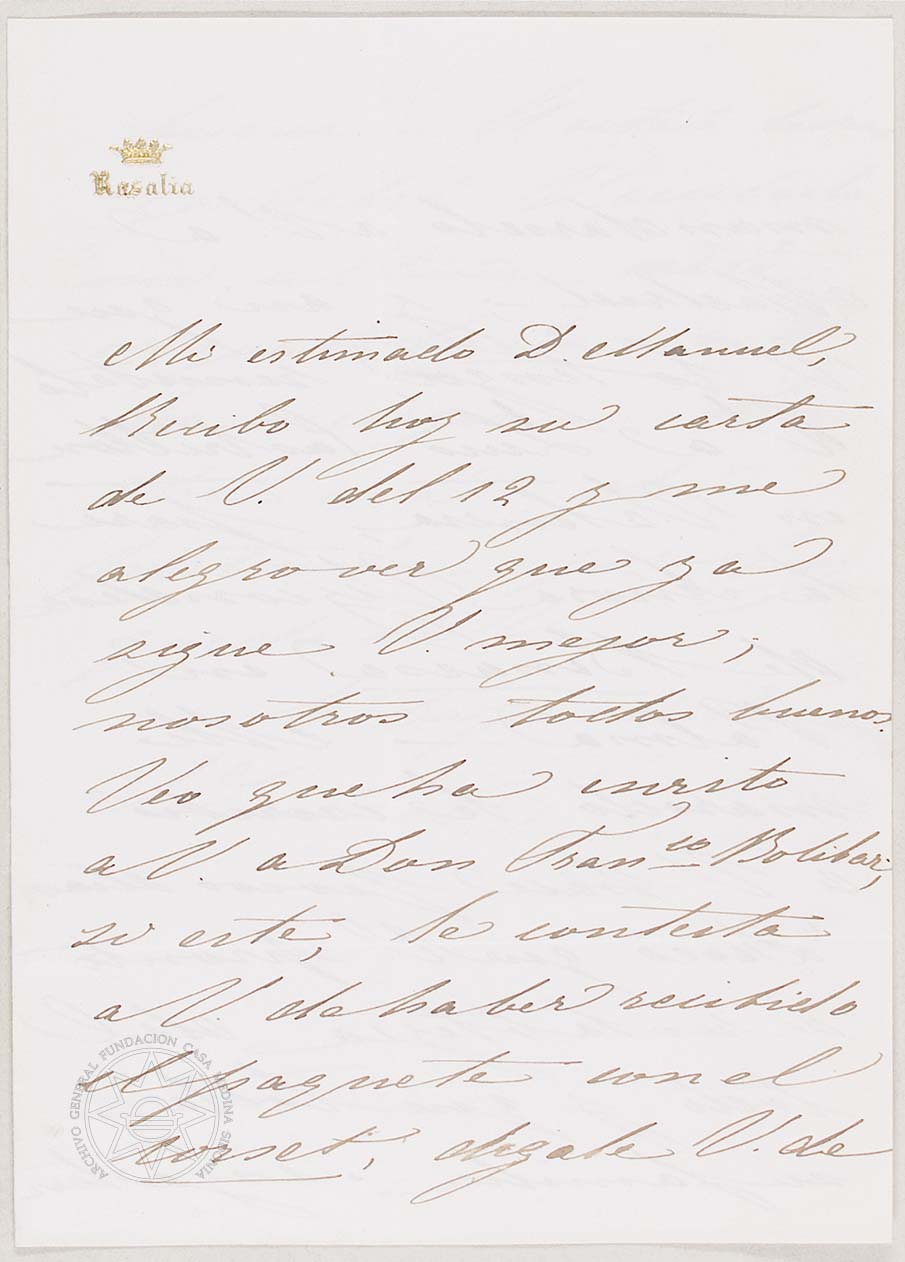 Rosalia
Mi estimado D. Manuel,
Recibo hoy su carta
de V. del 12 y me
alegro ver que ya
sigue V. mejor;
nosotros todos buenos.
Veo que ha escrito
a V. a Don Fran.co Bolibar;
si este, le contesta
a V. de haber recibido
el paquete con el
corset; digale V. de
ARCHIVO GENERAL FUNDACION CASA MEDINA SIDONIA